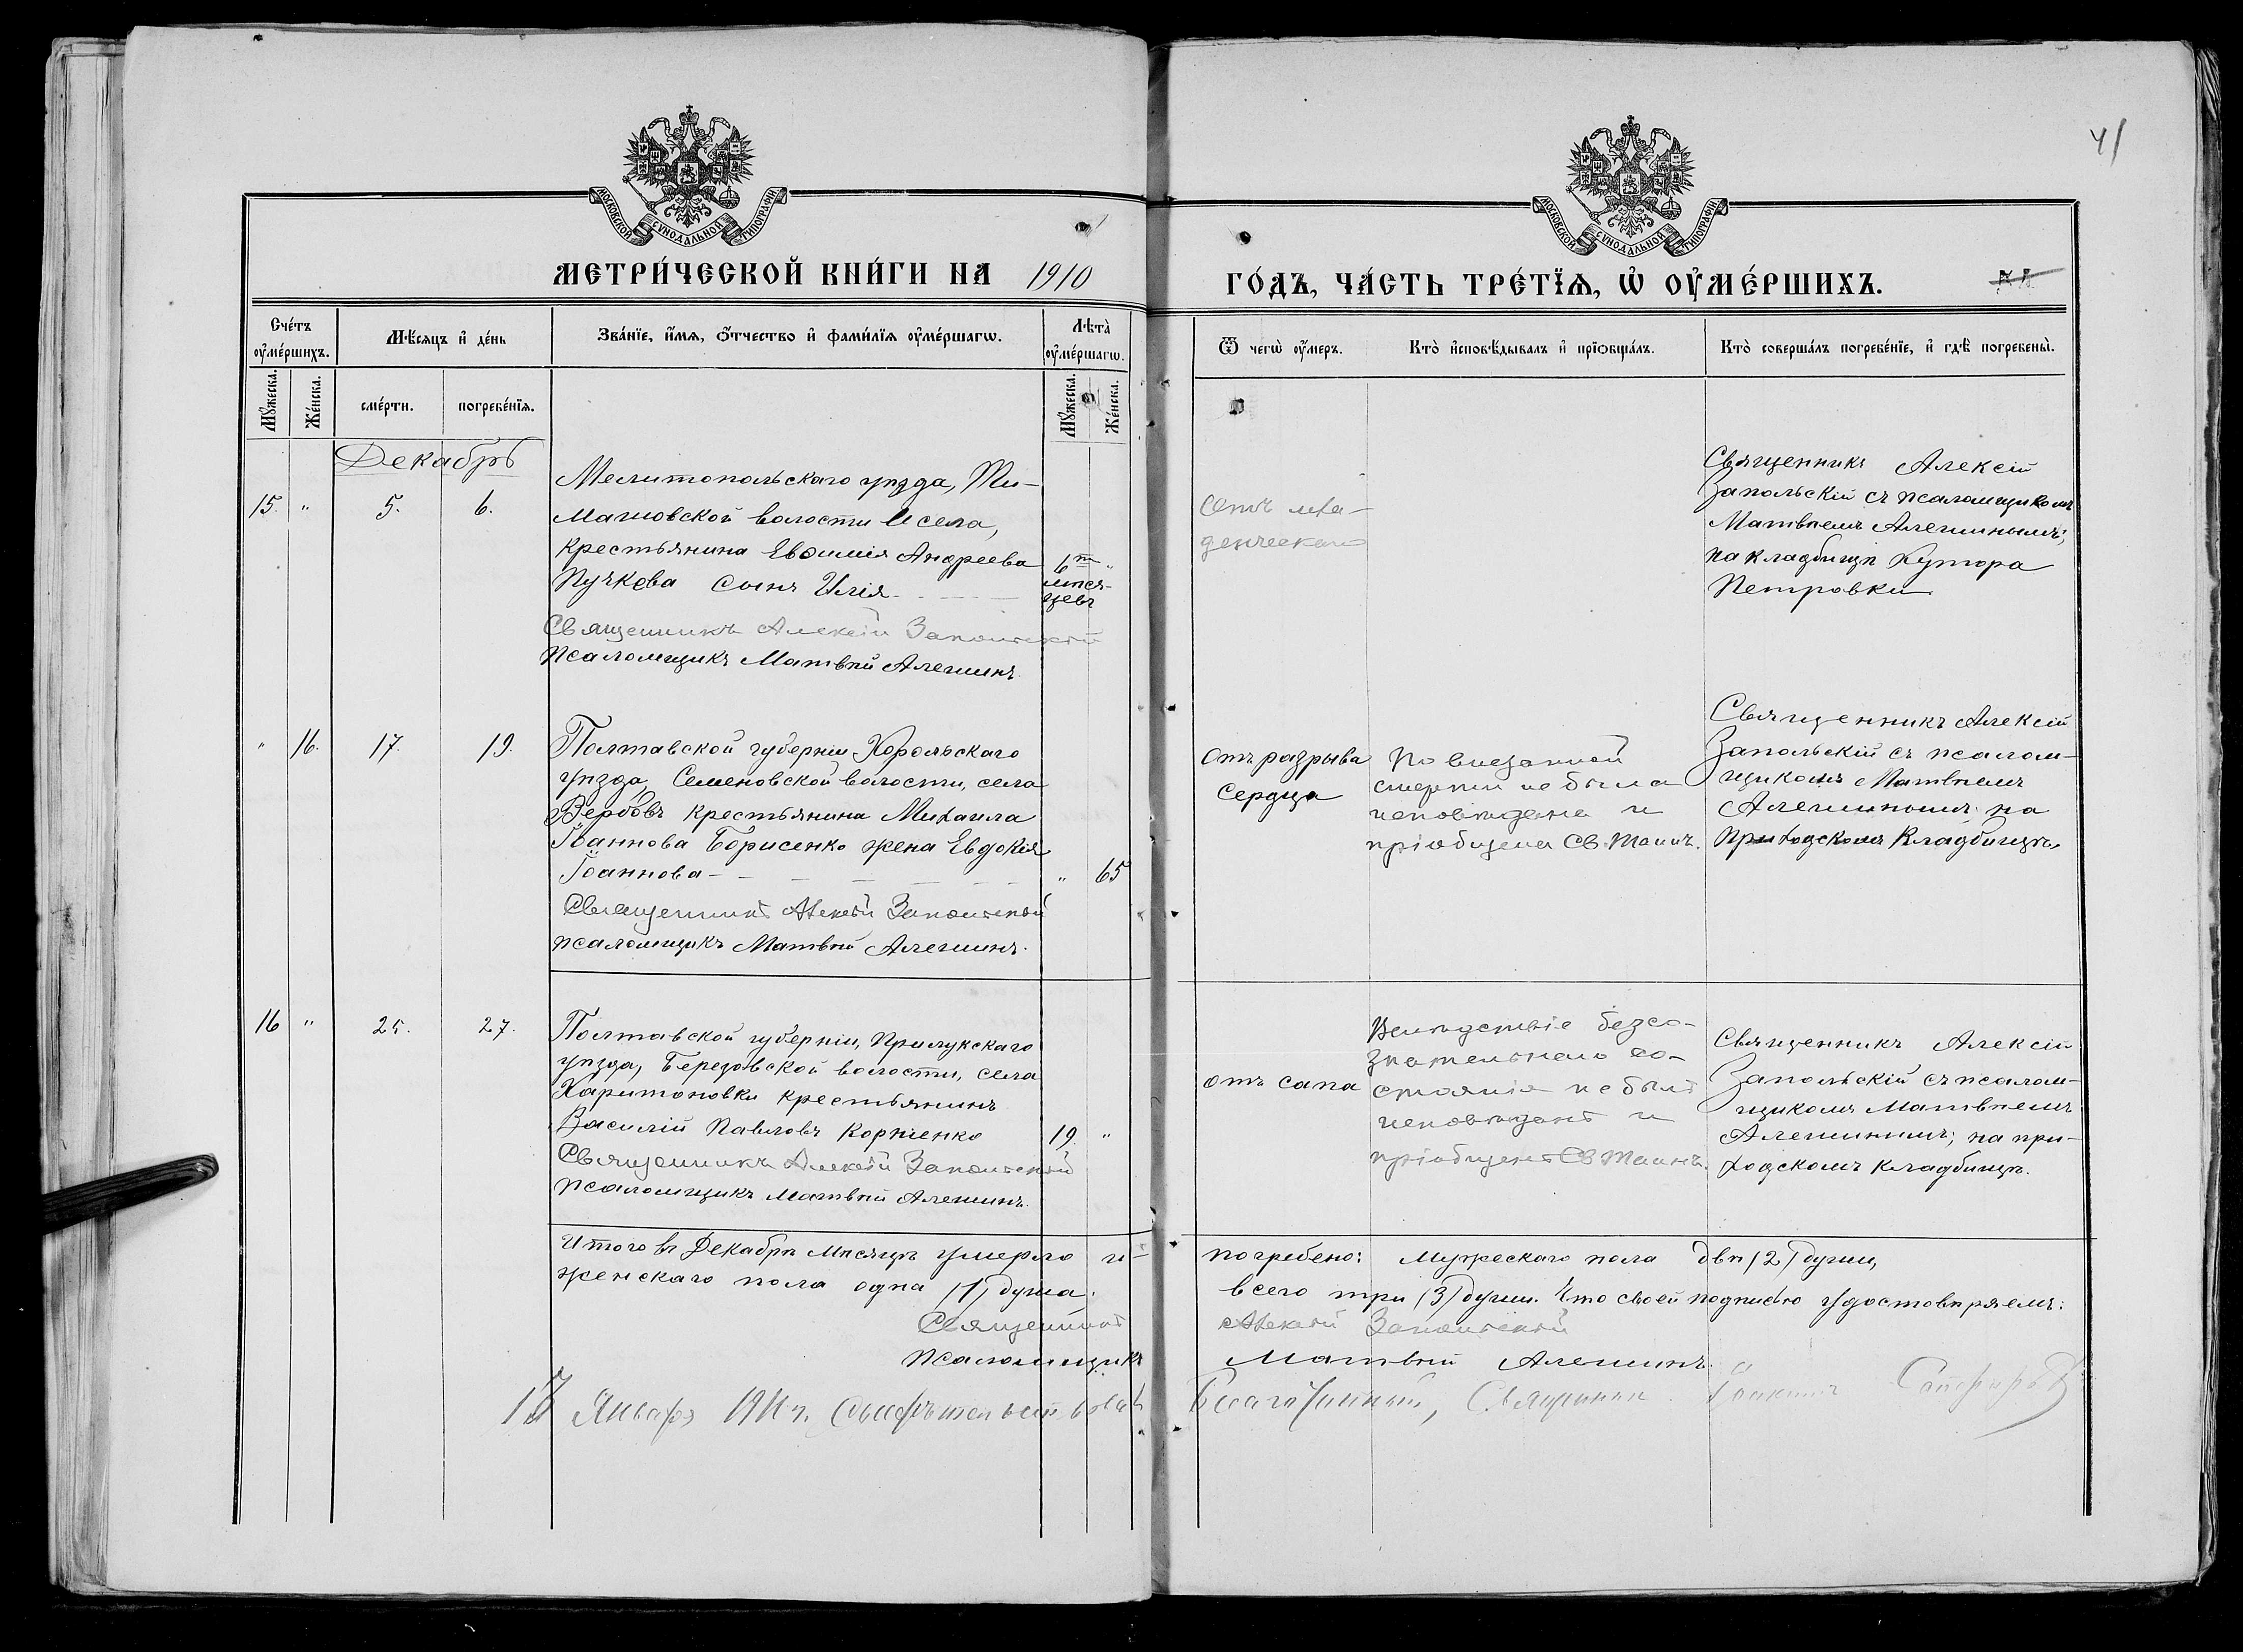 41
МОСКОВСКОЙ СѴНОДАЛЬНОЙ ТИПОГРАФІИ
МОСКОВСКОЙ СѴНОДАЛЬНОЙ ТИПОГРАФІИ
МЕТРИ́ЧЕСКОЙ КНИ́ГИ НА 1910
ГО́ДЪ, ЧА́СТЬ ТРЕ́ТЇѦ, Ѡ҆ ОУ҆МЕ́РШИХЪ.
Сче́тъ оу҆ме́ршихъ.
Мꙋ́жеска.
Же́нска.
Мѣ́сѧцъ и҆ де́нь
сме́рти.
погребе́нїѧ.
Зва́нїе, и҆́мѧ, ѻ҆́тчество и҆ фами́лїѧ оу҆ме́ршагѡ.
Лѣ̀та оу҆ме́ршагѡ.
Мꙋ́жеска.
Же́нска.
Ѿ чегѡ̀ оу҆́меръ.
Кто̀ и҆сповѣ́дывалъ и҆ прїѻбща́лъ.
Кто̀ соверша́лъ погребе́нїе, и҆ гдѣ̀ погребены̀.
Декабрь
15. " 5. 6.
Мелитопольскаго уѣзда, Ти-
машовской волости и села,
крестьянина Евѳимія Андреева
Пучкова сынъ Илія
6ти мѣся-
цевъ
"
Священникъ Алексій Запольскій
Псаломщикъ Матвѣй Алешинъ.
Отъ мла-
денческаго
Священникъ Алексій
Запольскій съ псаломщикомъ
Матвѣемъ Алешинымъ;
на кладбищѣ хутора
Петровки
" 16. 17. 19.
Полтавской губерніи, Хорольскаго
уѣзда, Семеновской волости, села
Вербовъ крестьянина Михаила
Іоаннова Борисенко жена Евдокія
Іоаннова
" 65
Священникъ Алексѣй Запольскій
псаломщикъ Матвѣй Алешинъ.
Отъ разрыва
сердца
По внезапной
смерти не была
исповѣдана и
пріобщена Св. Таинъ.
Священникъ Алексій
Запольскій съ псалом-
щикомъ Матвѣемъ
Алешинымъ; на
приходскомъ кладбищѣ
16 " 25. 27.
Полтавской губерніи, Прилукскаго
уѣзда, Березовской волости, села
Харитоновки крестьянинъ
Василій Павловъ Корніенко
19. "
Священникъ Алексѣй Запольскій
Псаломщикъ Матвѣй Алешинъ.
отъ сапа
Вслѣдствіе безсо-
знательнаго со-
стоянія не былъ
исповѣданъ и
пріобщенъ Св. Таинъ.
Священникъ Алексій
Запольскій съ псалом-
щикомъ Матвѣемъ
Алешинымъ; на при-
ходскомъ кладбищѣ.
Итого въ Декабрѣ мѣсяцѣ умерло и погребено: Мужескаго пола двѣ (2) души,
женскаго пола одна (1) душа. всего три (3) души. Что своей подписью удостовѣряемъ:
Священникъ Алексѣй Запольскій
Псаломщикъ Матвѣй Алешинъ.
Января 1911 г. свидѣтельствовалъ Благочинный, Священникъ